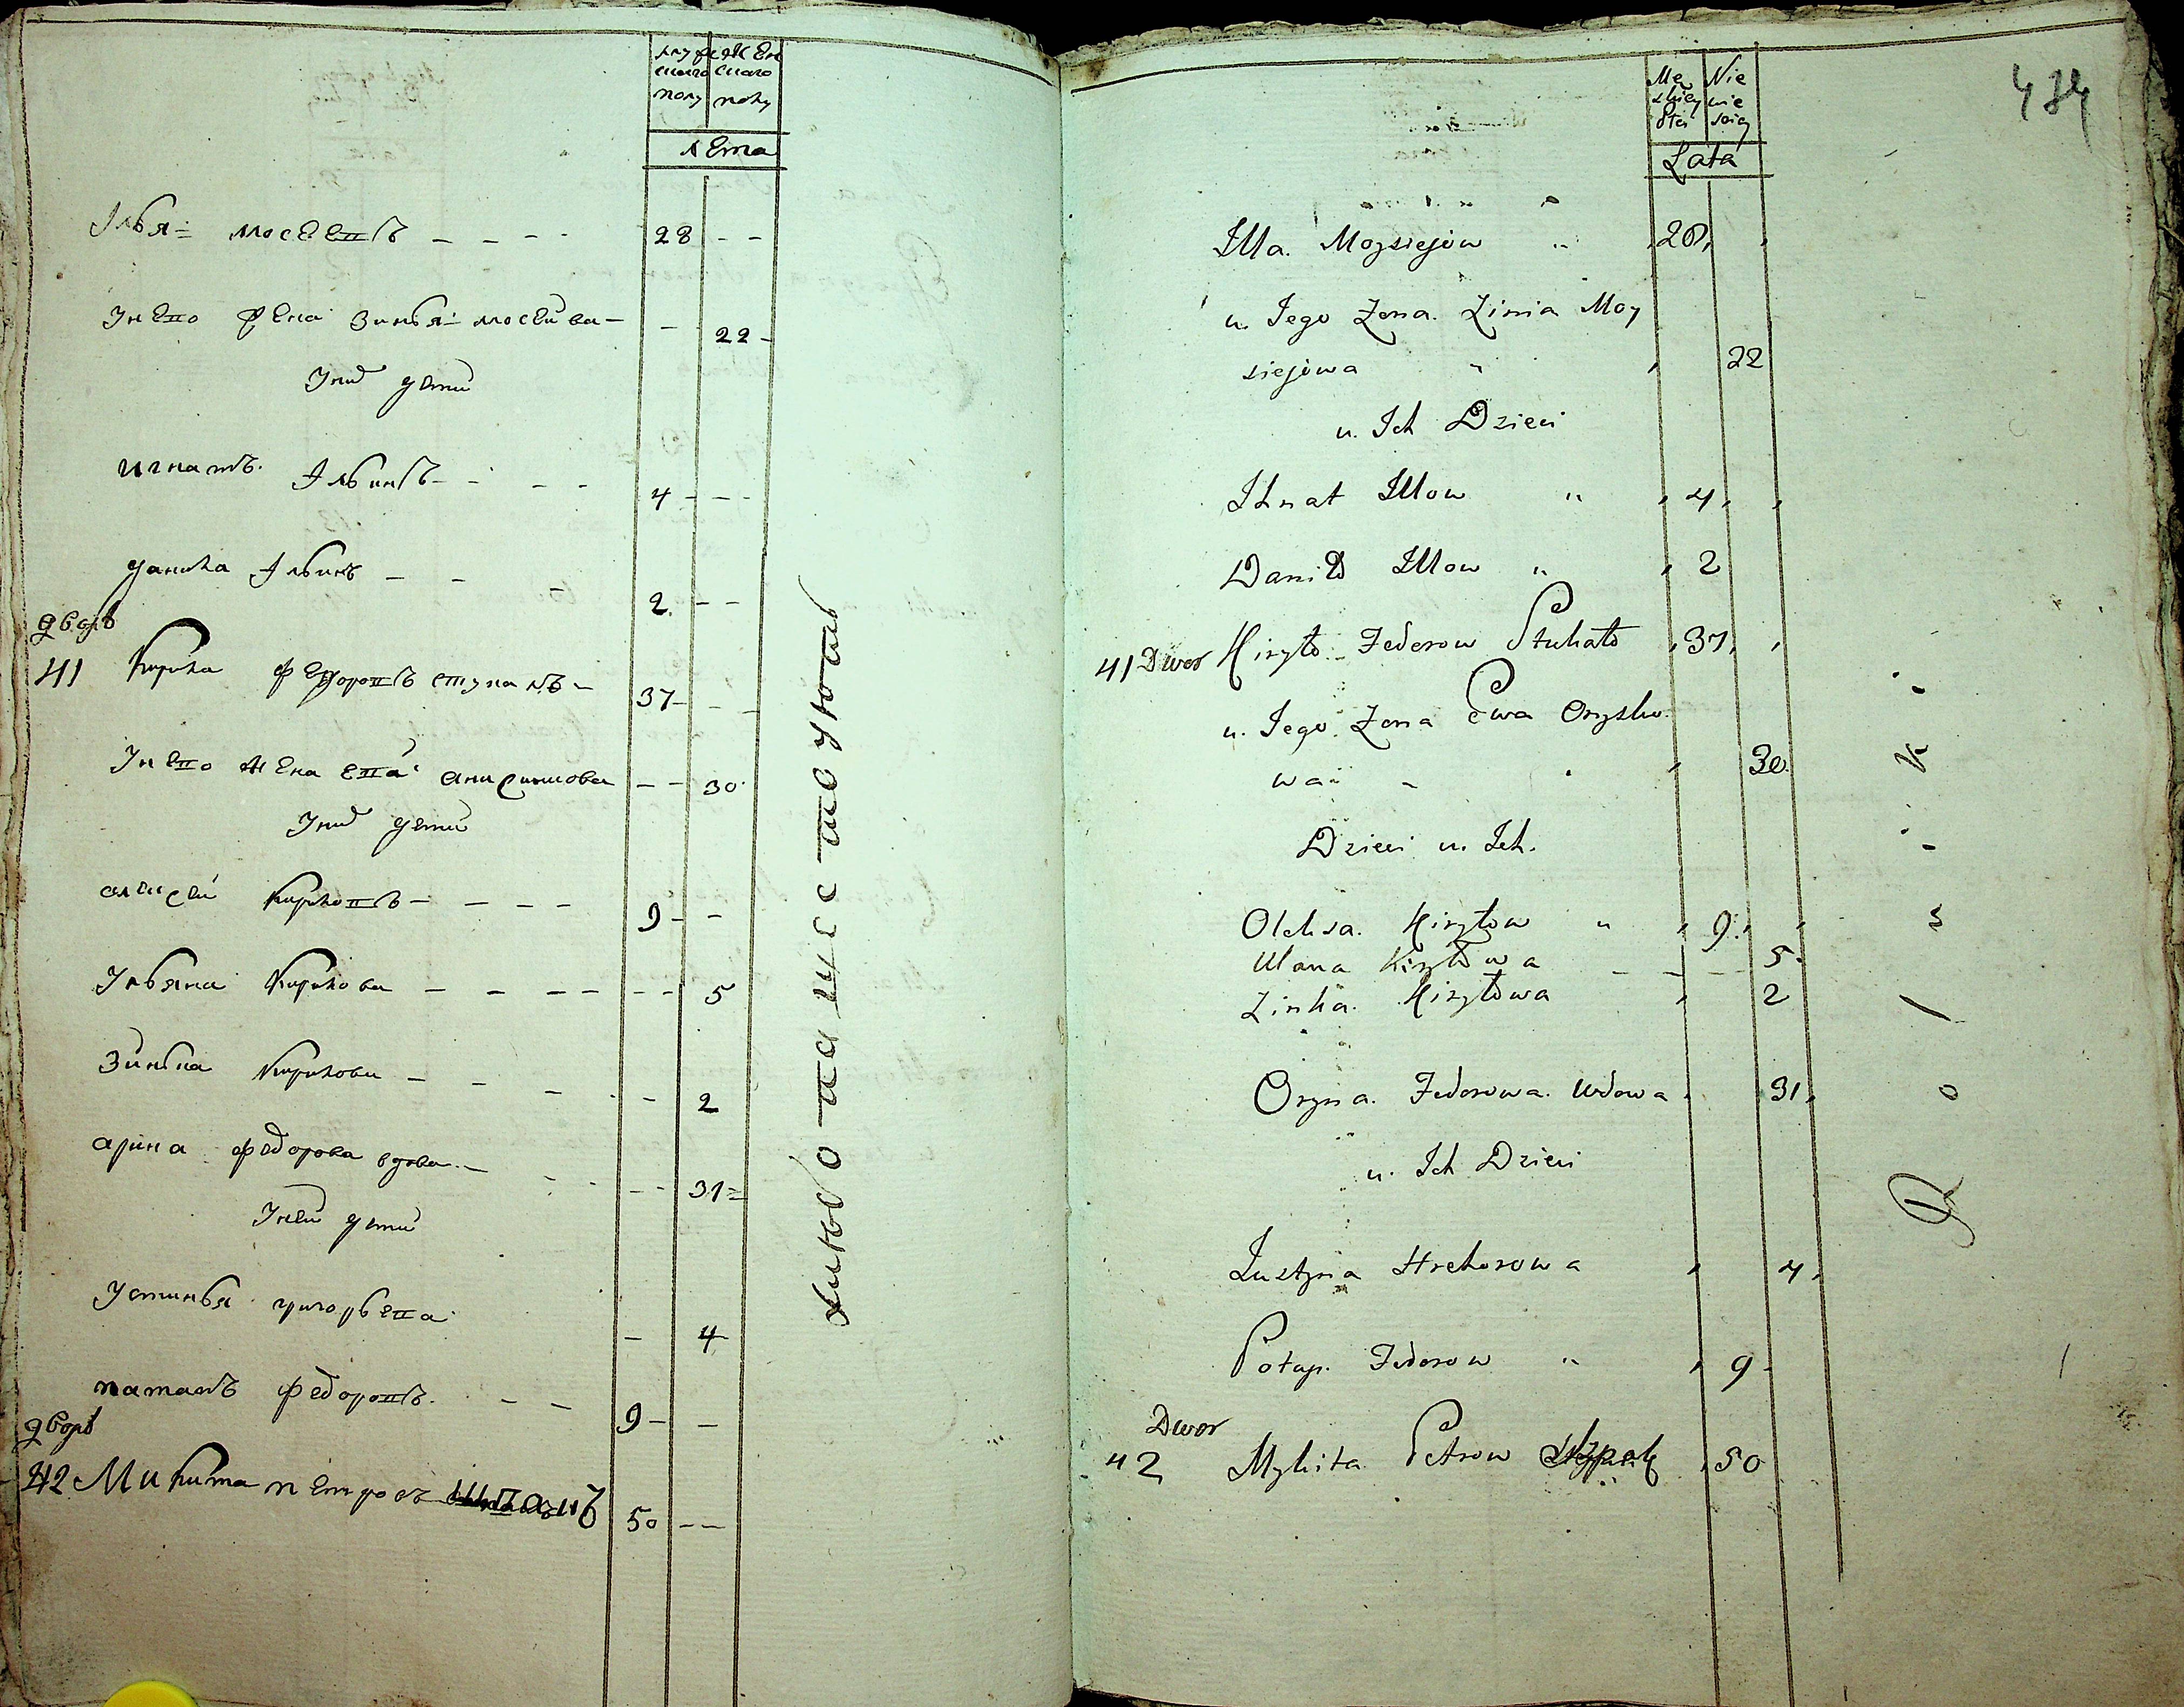 мужескаго полу
женскаго полу
лета
Илья Мосеевъ 28
У него жена Зинья Мосеива 22
У них дети
Игнатъ Ильинъ 4
Данила Ильинъ 2
дворъ
41 Кирила Федоровъ Стукалъ 37
У него жена Ева Анисимова 30
У них дети
Алексей Кириловъ 9
Ульяна Кирилова 5
Зинька Кирилова 2
Арина Федорова вдова 31
У ней дети
Устинья Григорьева 4
Патапъ Федоровъ 9
дворъ
42 Микита Петровъ 50
434
Męzkiey płci
Niewieściey
Lata
Illa Moysiejow 28
u Jego Żona Zinia Moy
siejowa 22
u Ich Dzieci
Ihnat Illow 4
Daniło Illow 2
41 Dwor Kiryło Fedorow Stukało 37
u Jego Żona Ewa Onysko
wa 30
Dzieci u Ich
Oleksa Kiryłow 9
Ulana Kiryłowa 5
Zinka Kiryłowa 2
Oryna Fedorowa Wdowa 31
u Ich Dzieci
Justyna Hrehorowa 4
Potap Fedorow 9
Dwor
42 Mykita Petrow 50